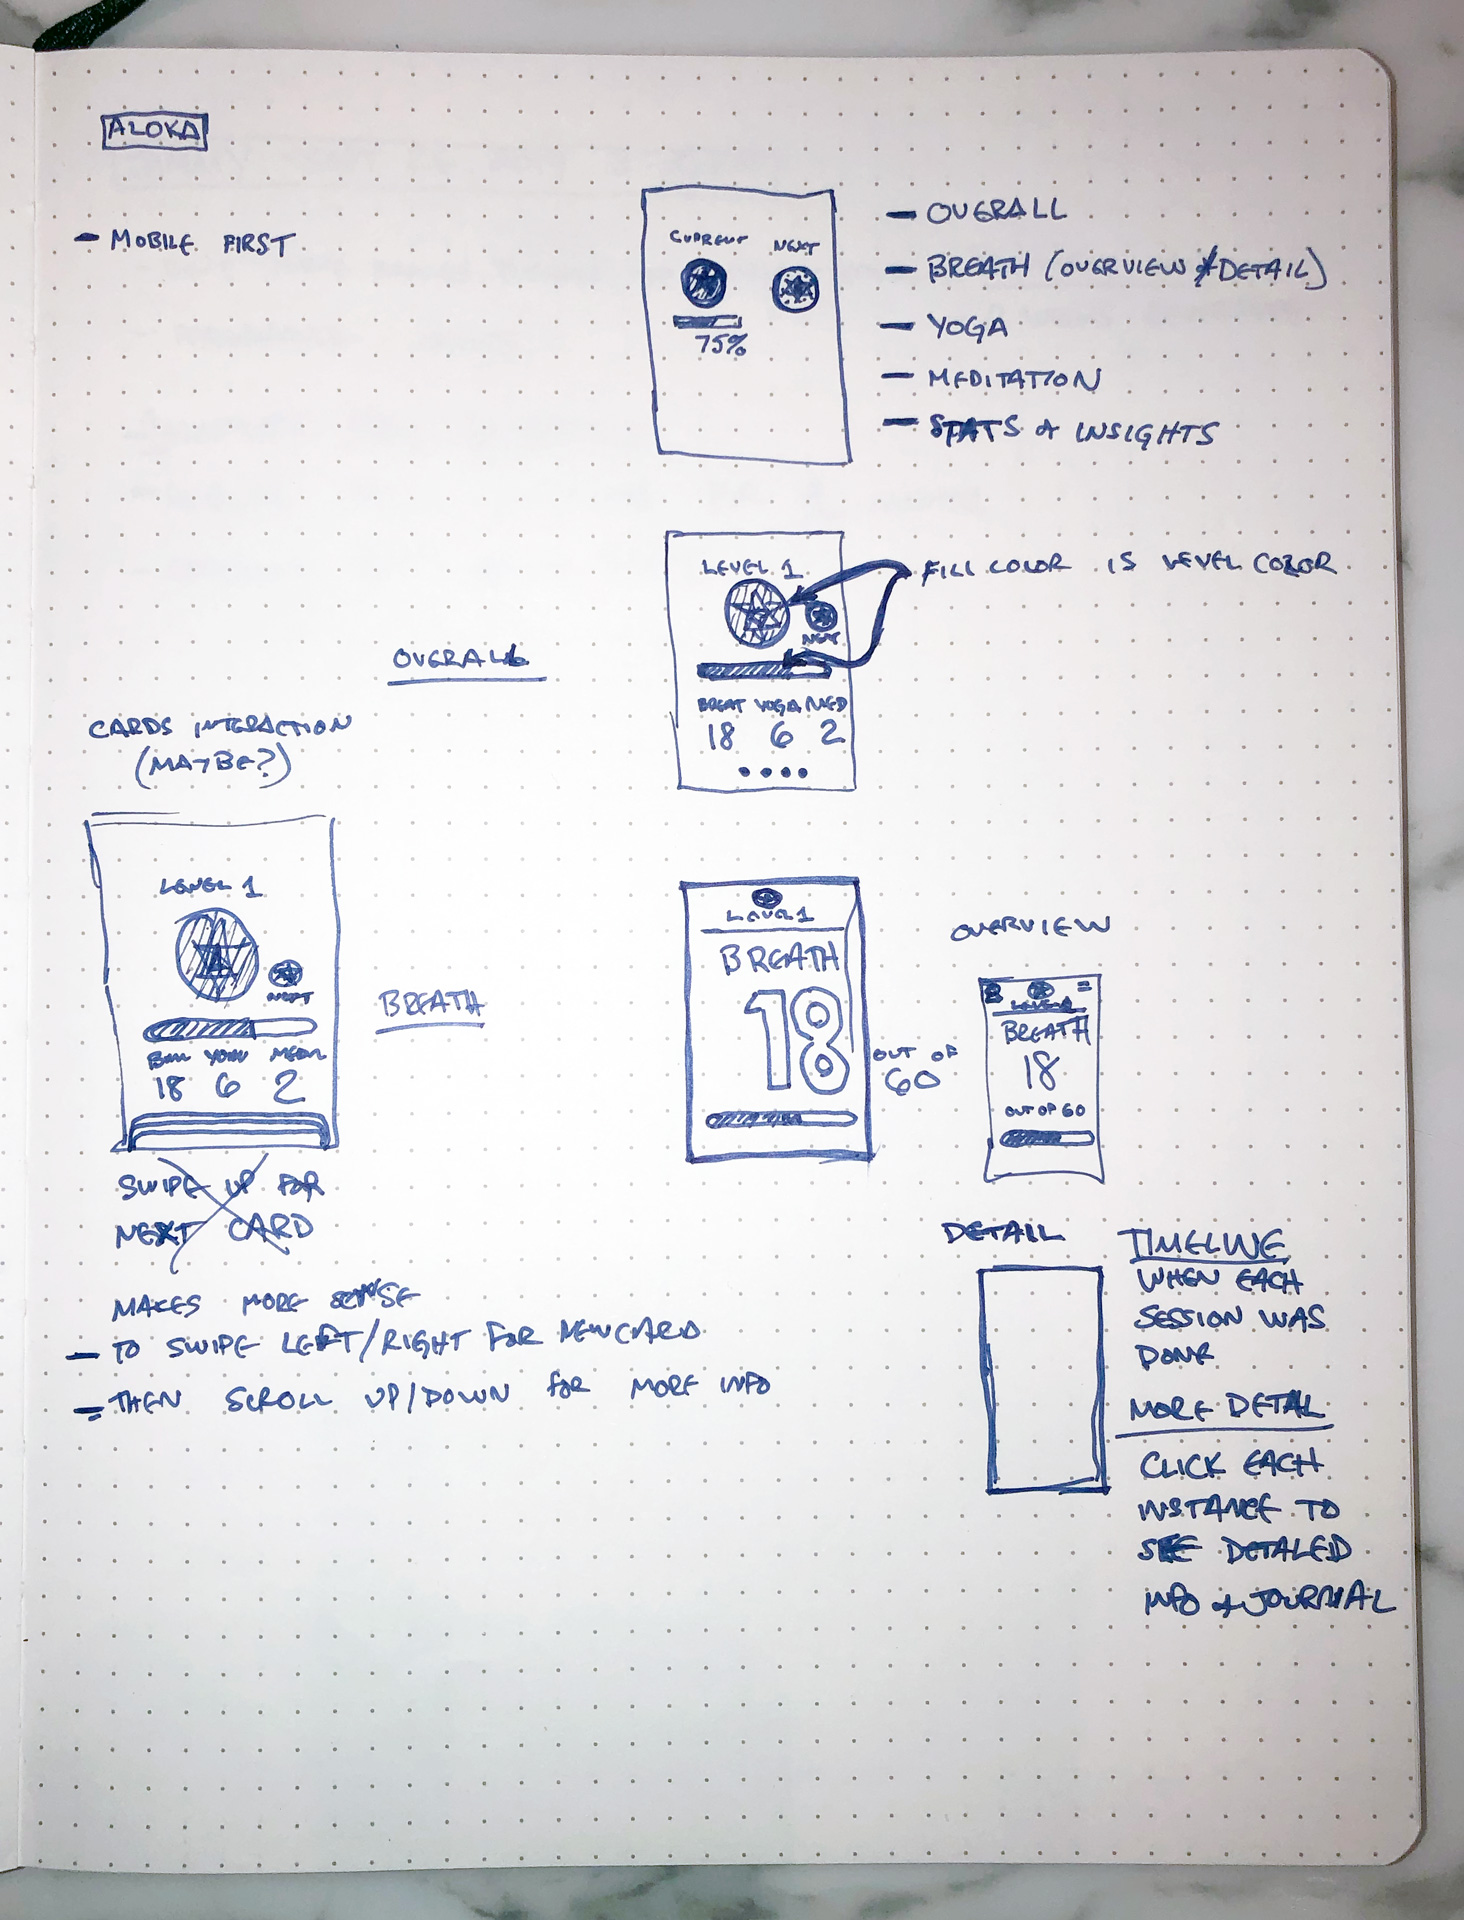 ALOKA
- MOBILE FIRST
CURRENT NEXT
75%
- OVERALL
- BREATH (OVERVIEW & DETAIL)
- YOGA
- MEDITATION
- STATS & INSIGHTS
LEVEL 1
NEXT
BREAT YOGA MED
18 6 2
FILL COLOR IS LEVEL COLOR
OVERALL
CARDS INTERACTION
(MAYBE?)
LEVEL 1
NEXT
18 6 2
SWIPE UP FOR
NEXT CARD
MAKES MORE SENSE
- TO SWIPE LEFT/RIGHT FOR NEW CARD
- THEN SCROLL UP/DOWN FOR MORE INFO
BREATH
LEVEL 1
BREATH
18
OUT OF
60
OVERVIEW
BREATH
18
OUT OF 60
DETAIL
TIMELINE
WHEN EACH
SESSION WAS
DONE
MORE DETAL
CLICK EACH
INSTANCE TO
SEE DETALED
INFO & JOURNAL